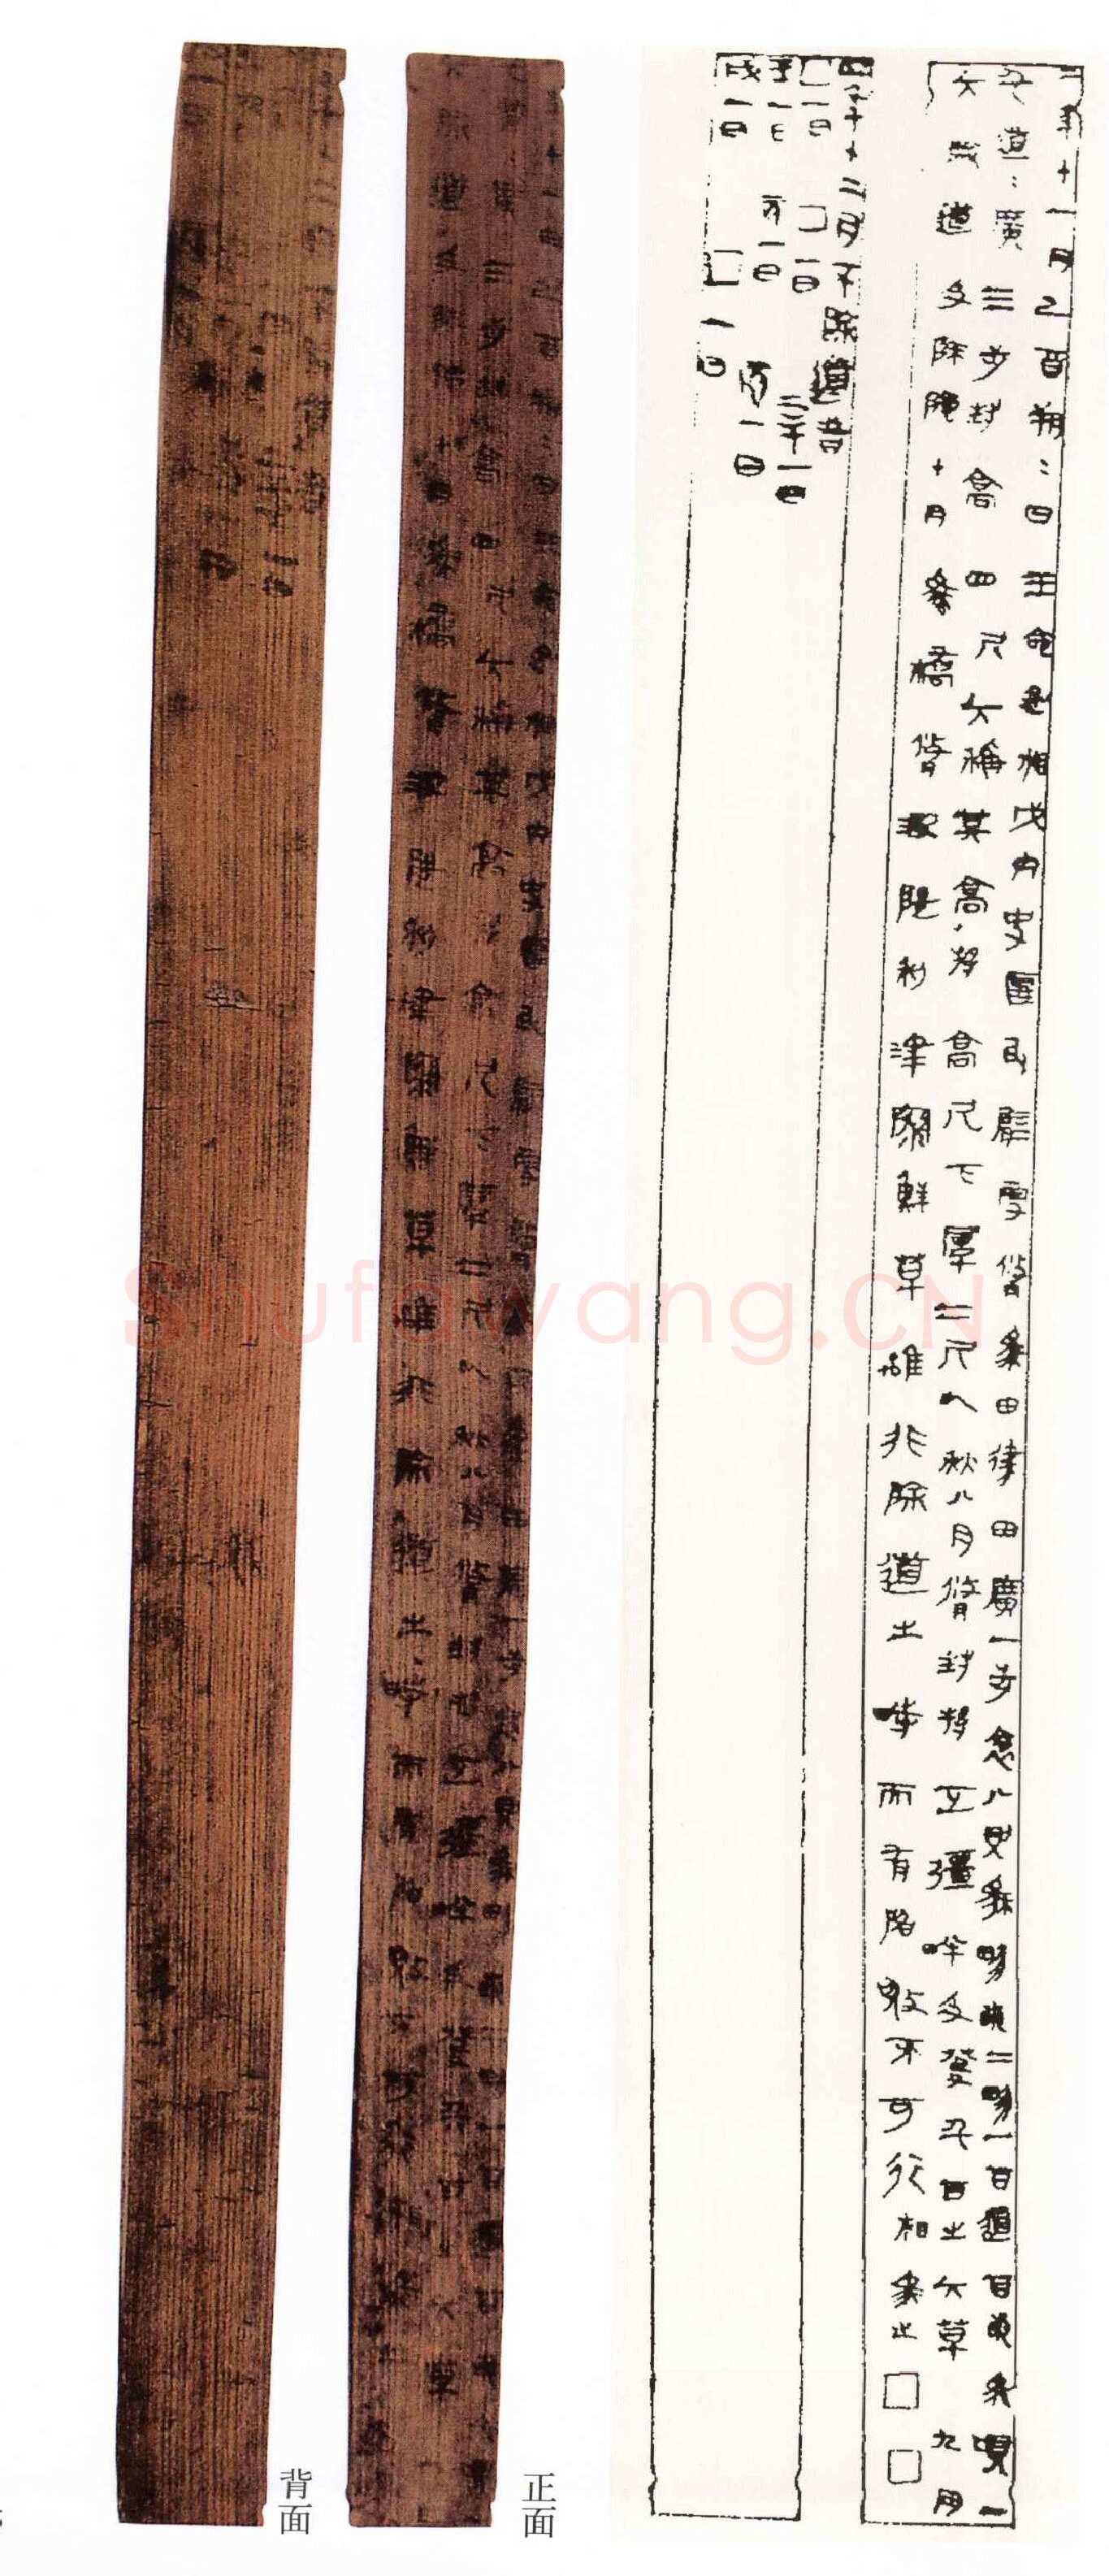 二年十一月己酉朔=日王命丞相戊内史匽民臂更脩為田律田廣一步袤八則為畛畝二畛一百道百畝為頃一
千道=廣三步封高四尺大稱其高捋高尺下厚二尺以秋八月脩封捋正彊畔及癹千百之大草九月
大除道及除澮十月為橋脩波隄利津梁鮮草離非除道之時而有陷敗不可行輒為之
四年十二月不除道者
一日 一日 辛一日
壬一日 亥一日 辰一日
戌一日 一日
正面
背面
Shufawang.CN